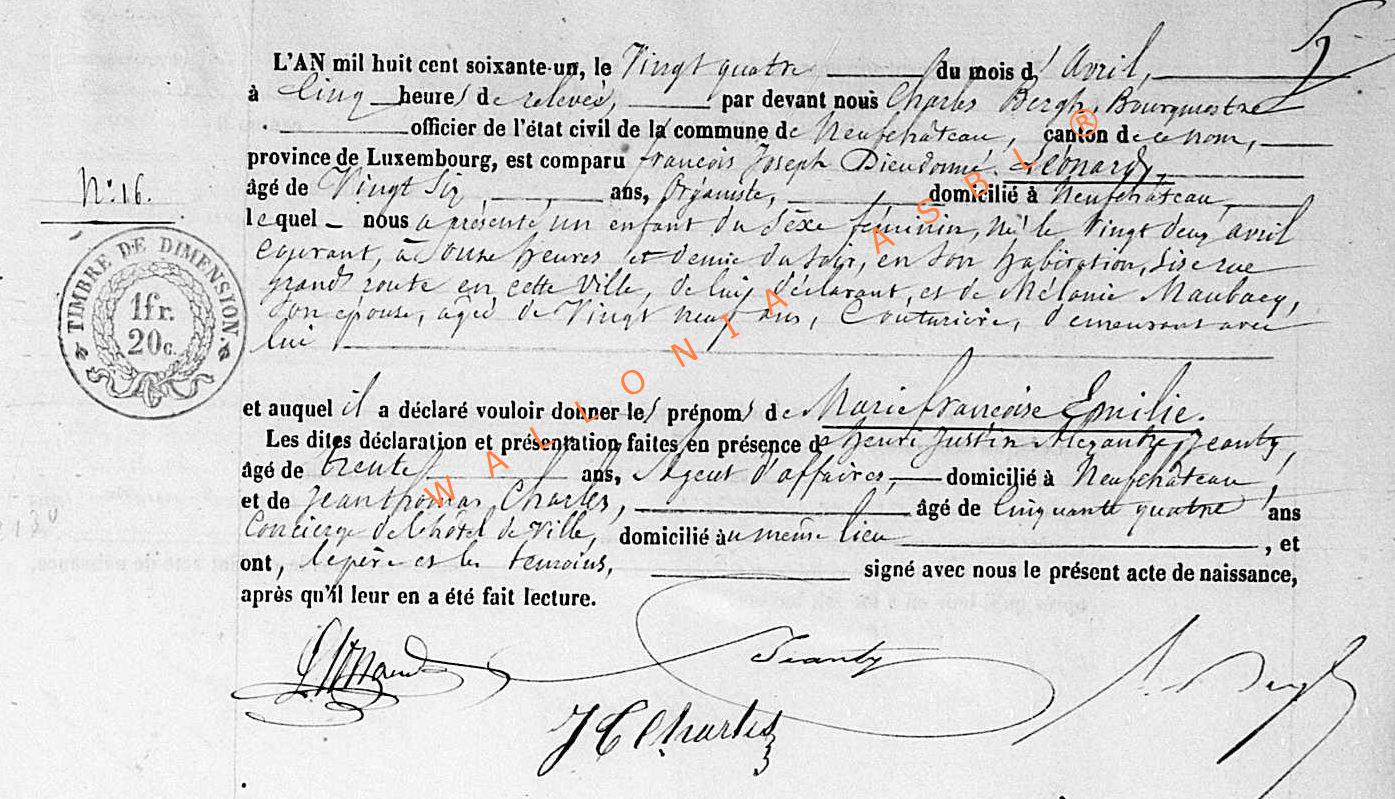 L'AN mil huit cent soixante-un, le Vingt quatre du mois d'Avril,
à Cinq heures de relevée, par devant nous Charles Bergh, Bourgmestre
officier de l'état civil de la commune de Neufchâteau, canton de ce nom,
province de Luxembourg, est comparu françois Joseph Dieudonné Léonardy,
N° 16.
âgé de Vingt Six ans, Organiste, domicilié à Neufchâteau,
lequel nous a présenté un enfant du Séxe féminin, né le Vingt deux avril
courant, à Douze heures et demie du Soir, en Son habitation, Sise rue
grand route en cette Ville, de lui déclarant, et de Mélanie
Son épouse, agée de Vingt neuf ans, Couturière, demeurant avec
lui
TIMBRE DE DIMENSION.
1fr.
20c.
et auquel il a déclaré vouloir donner les prénoms de Marie françoise Emilie.
Les dites déclaration et présentation faites en présence de henri Justin Alexandre Jeanty,
âgé de trente ans, Agent d'affaires, domicilié à Neufchâteau,
et de Jean thomas Charles, âgé de Cinquante quatre ans
Concierge de l'hôtel de Ville, domicilié au même lieu, et
ont, le père et les temoins, signé avec nous le présent acte de naissance,
après qu'il leur en a été fait lecture.
Jeanty
J T Charles
WALLONIA ASBL ®